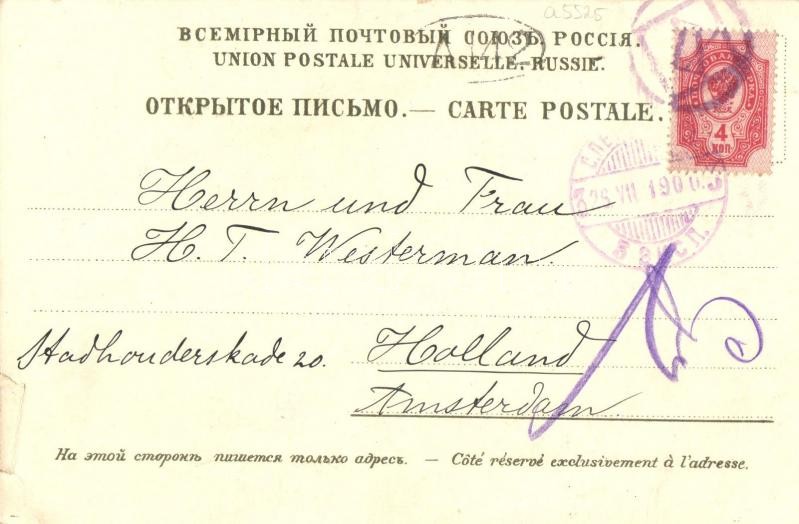 a5525
ВСЕМІРНЫЙ ПОЧТОВЫЙ СОЮЗЪ. РОССІЯ.
UNION POSTALE UNIVERSELLE. RUSSIE.
ОТКРЫТОЕ ПИСЬМО. — CARTE POSTALE.
ПОЧТОВАЯ МАРКА
4
КОП
26 VII 1906
Herrn und Frau
H. T. Westerman.
Stadhouderskade 20. Holland
Amsterdam.
На этой сторонѣ пишется только адресъ. — Côté réservé exclusivement à l'adresse.